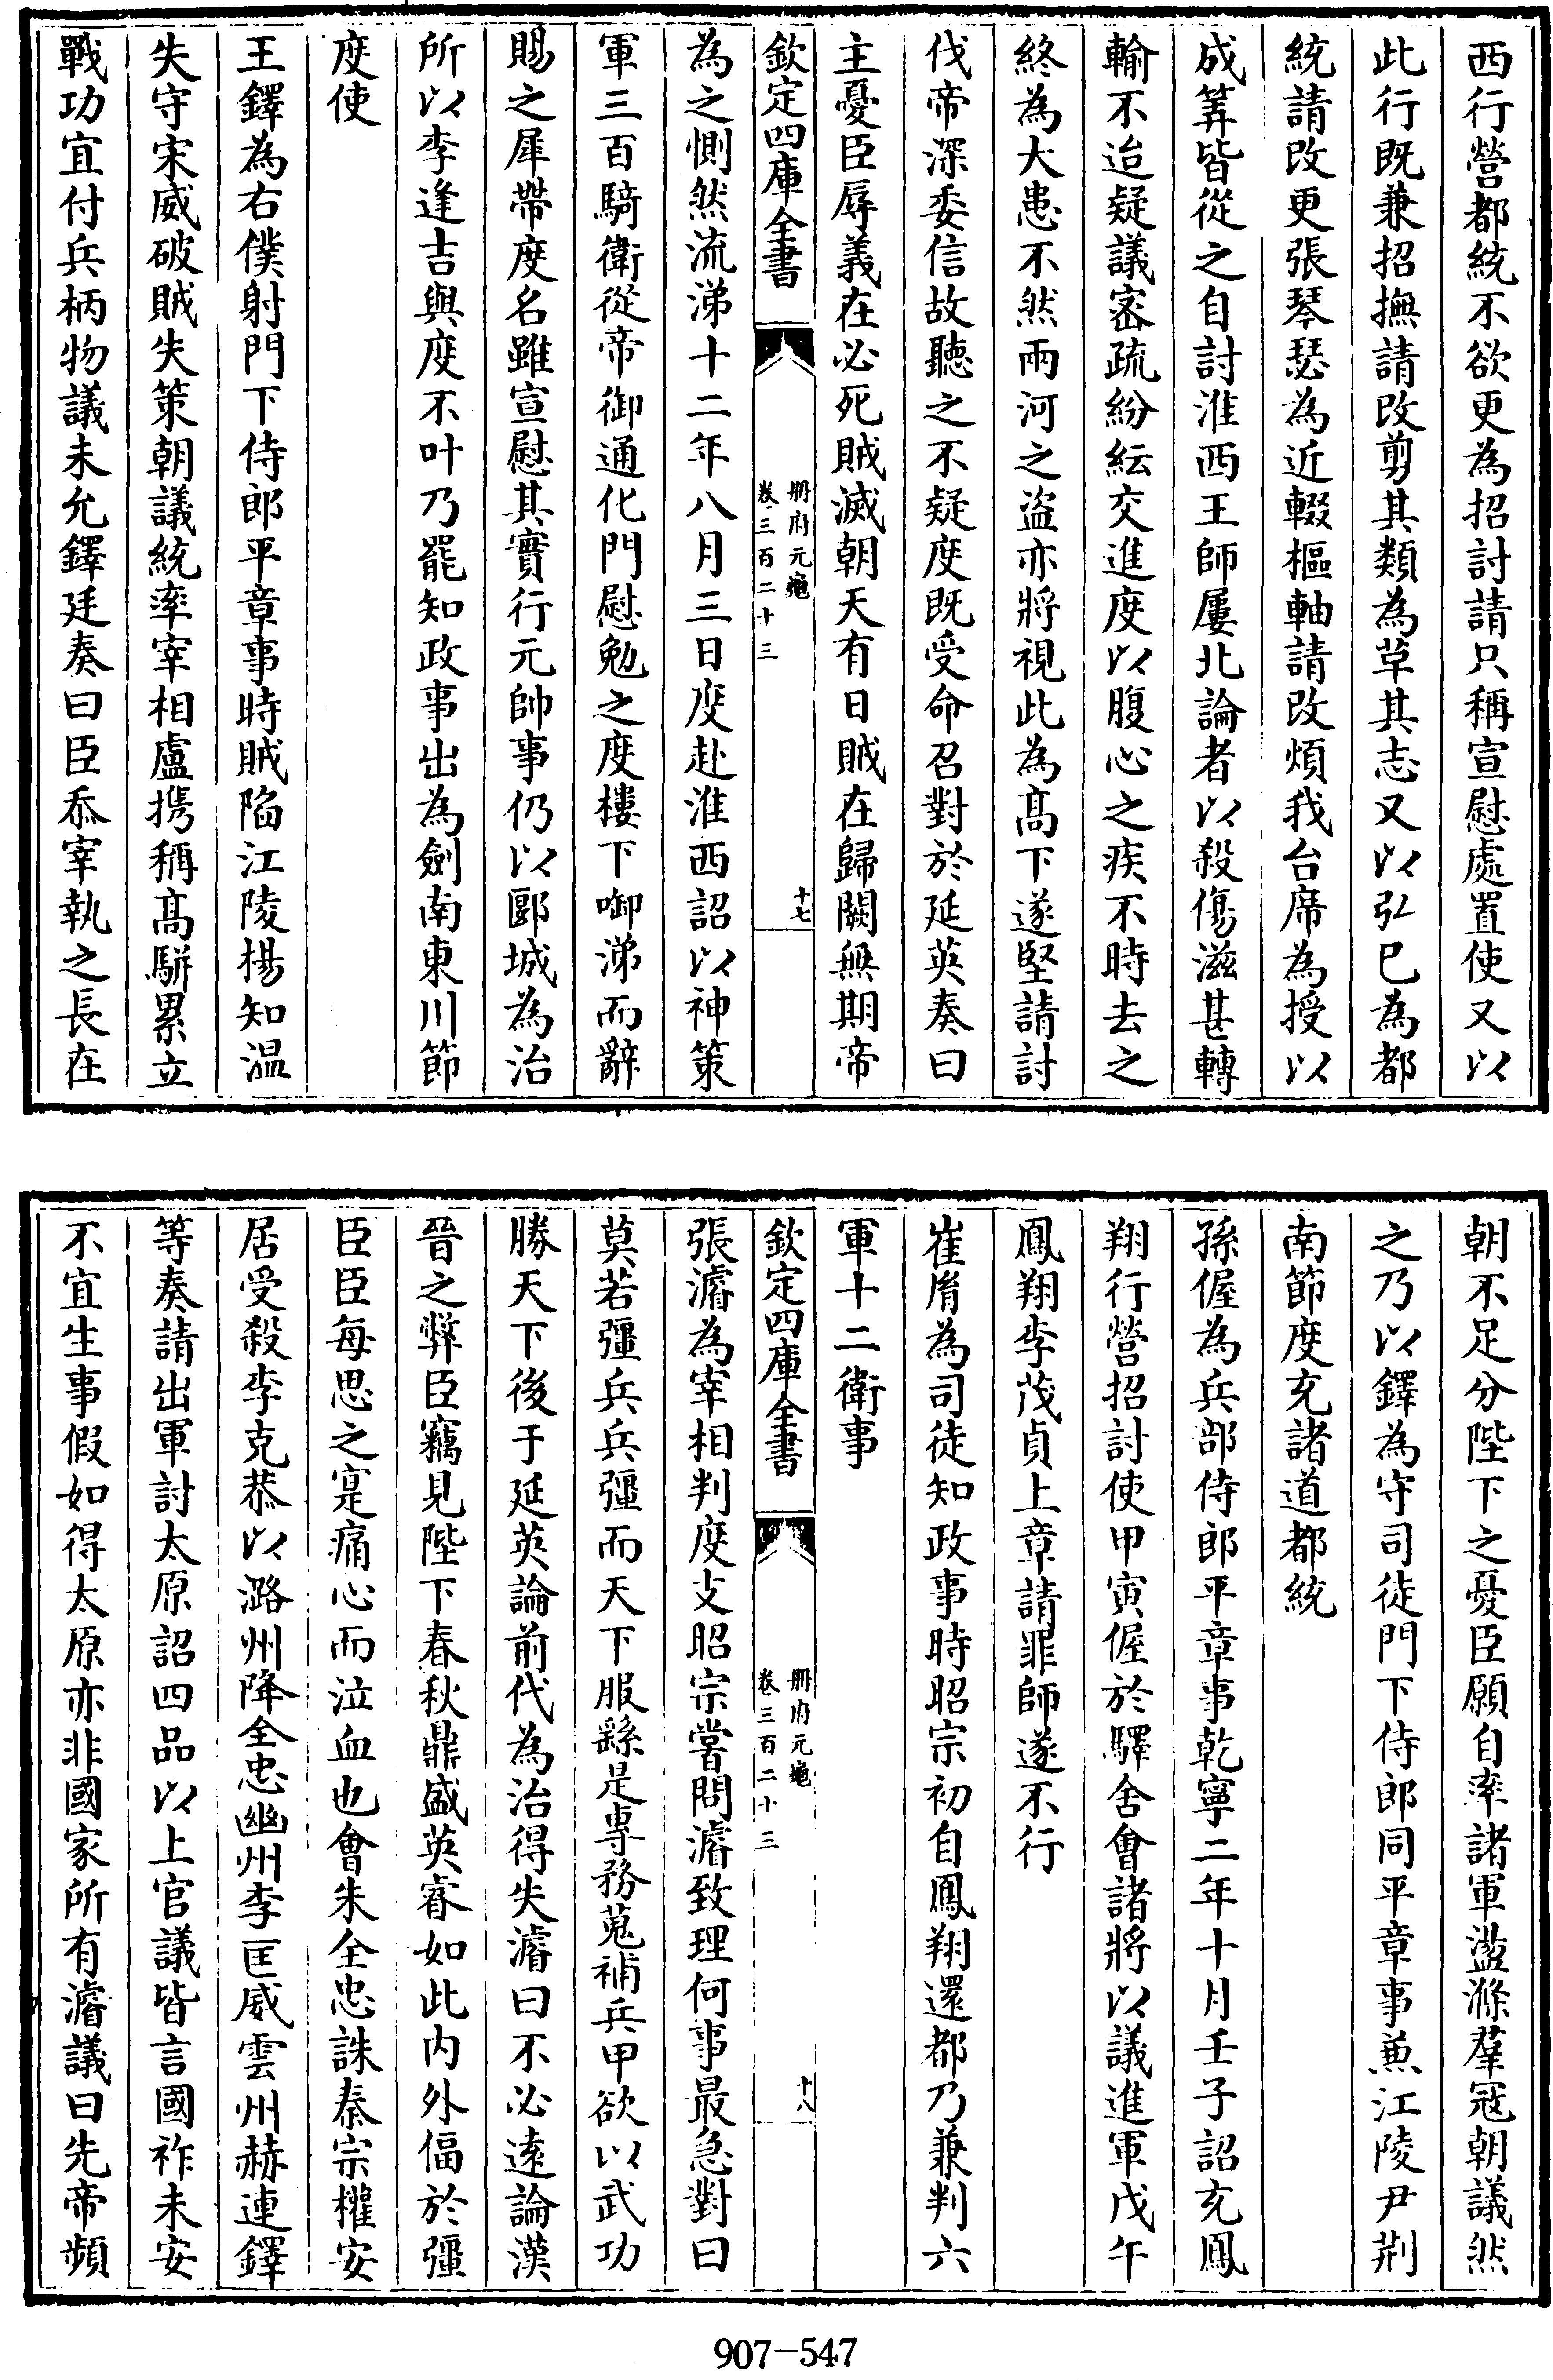 西行營都統不欲更為招討請只稱宣慰處置使又以
此行既兼招撫請改剪其類為草其志又以弘已為都
統請改更張琴瑟為近輟樞軸請改煩我台席為授以
成筭皆從之自討淮西王師屢北論者以殺傷滋甚轉
輸不迨疑議密疏紛紜交進度以腹心之疾不時去之
終為大患不然兩河之盜亦將視此為髙下遂堅請討
伐帝深委信故聽之不疑度既受命召對於延英奏曰
主憂臣辱義在必死賊滅朝天有日賊在歸闕無期帝
欽定四庫全書
册府元龜
卷三百二十三
十七
為之惻然流涕十二年八月三日度赴淮西詔以神策
軍三百騎衛從帝御通化門慰勉之度樓下啣涕而辭
賜之犀帶度名雖宣慰其實行元帥事仍以郾城為治
所以李逢吉與度不叶乃罷知政事出為劍南東川節
度使
王鐸為右僕射門下侍郎平章事時賊陷江陵楊知温
失守宋威破賊失策朝議統率宰相盧攜稱髙駢累立
戰功宜付兵柄物議未允鐸廷奏曰臣忝宰執之長在
朝不足分陛下之憂臣願自率諸軍盪滌羣寇朝議然
之乃以鐸為守司徒門下侍郎同平章事兼江陵尹荆
南節度充諸道都統
孫偓為兵部侍郎平章事乾寧二年十月壬子詔充鳳
翔行營招討使甲寅偓於驛舍會諸將以議進軍戊午
鳳翔李茂貞上章請罪師遂不行
崔𦙍為司徒知政事時昭宗初自鳳翔還都乃兼判六
軍十二衛事
欽定四庫全書
册府元龜
卷三百二十三
十八
張濬為宰相判度支昭宗嘗問濬致理何事最急對曰
莫若彊兵兵彊而天下服繇是專務蒐補兵甲欲以武功
勝天下後于延英論前代為治得失濬曰不必逺論漢
晉之弊臣竊見陛下春秋鼎盛英睿如此内外偪於彊
臣臣每思之寔痛心而泣血也會朱全忠誅秦宗權安
居受殺李克恭以潞州降全忠幽州李匡威雲州赫連鐸
等奏請出軍討太原詔四品以上官議皆言國祚未安
不宜生事假如得太原亦非國家所有濬議曰先帝頻
907-547